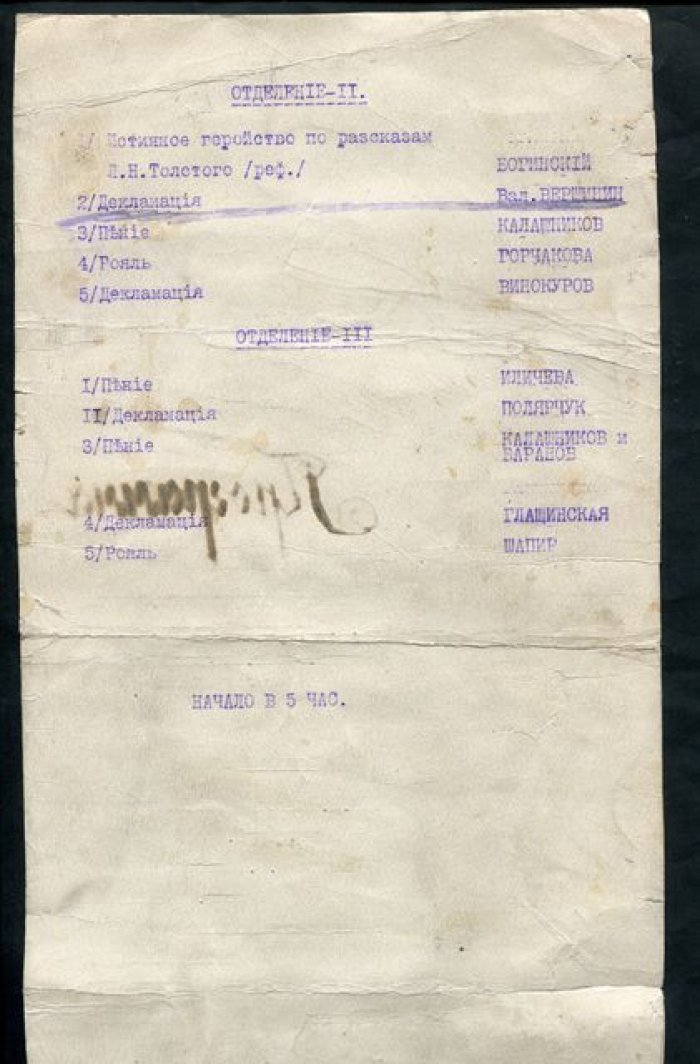 ОТДЕЛЕНІЕ-II.
1/ Истинное геройство по разсказам
Л.Н.Толстого /реф./ БОГИНСКІЙ
2/Декламація Вал. ВЕРШИНИН
3/Пѣніе КАЛАШНИКОВ
4/Рояль ГОРЧАКОВА
5/Декламація ВИНОКУРОВ
ОТДЕЛЕНІЕ-III
I/Пѣніе ИЛИЧЕВА
II/Декламація ПОЛЯРЧУК
3/Пѣніе КАЛАШНИКОВ и
БАРАНОВ
4/Декламація ГЛАЩИНСКАЯ
5/Рояль ШАПИР
НАЧАЛО В 5 ЧАС.